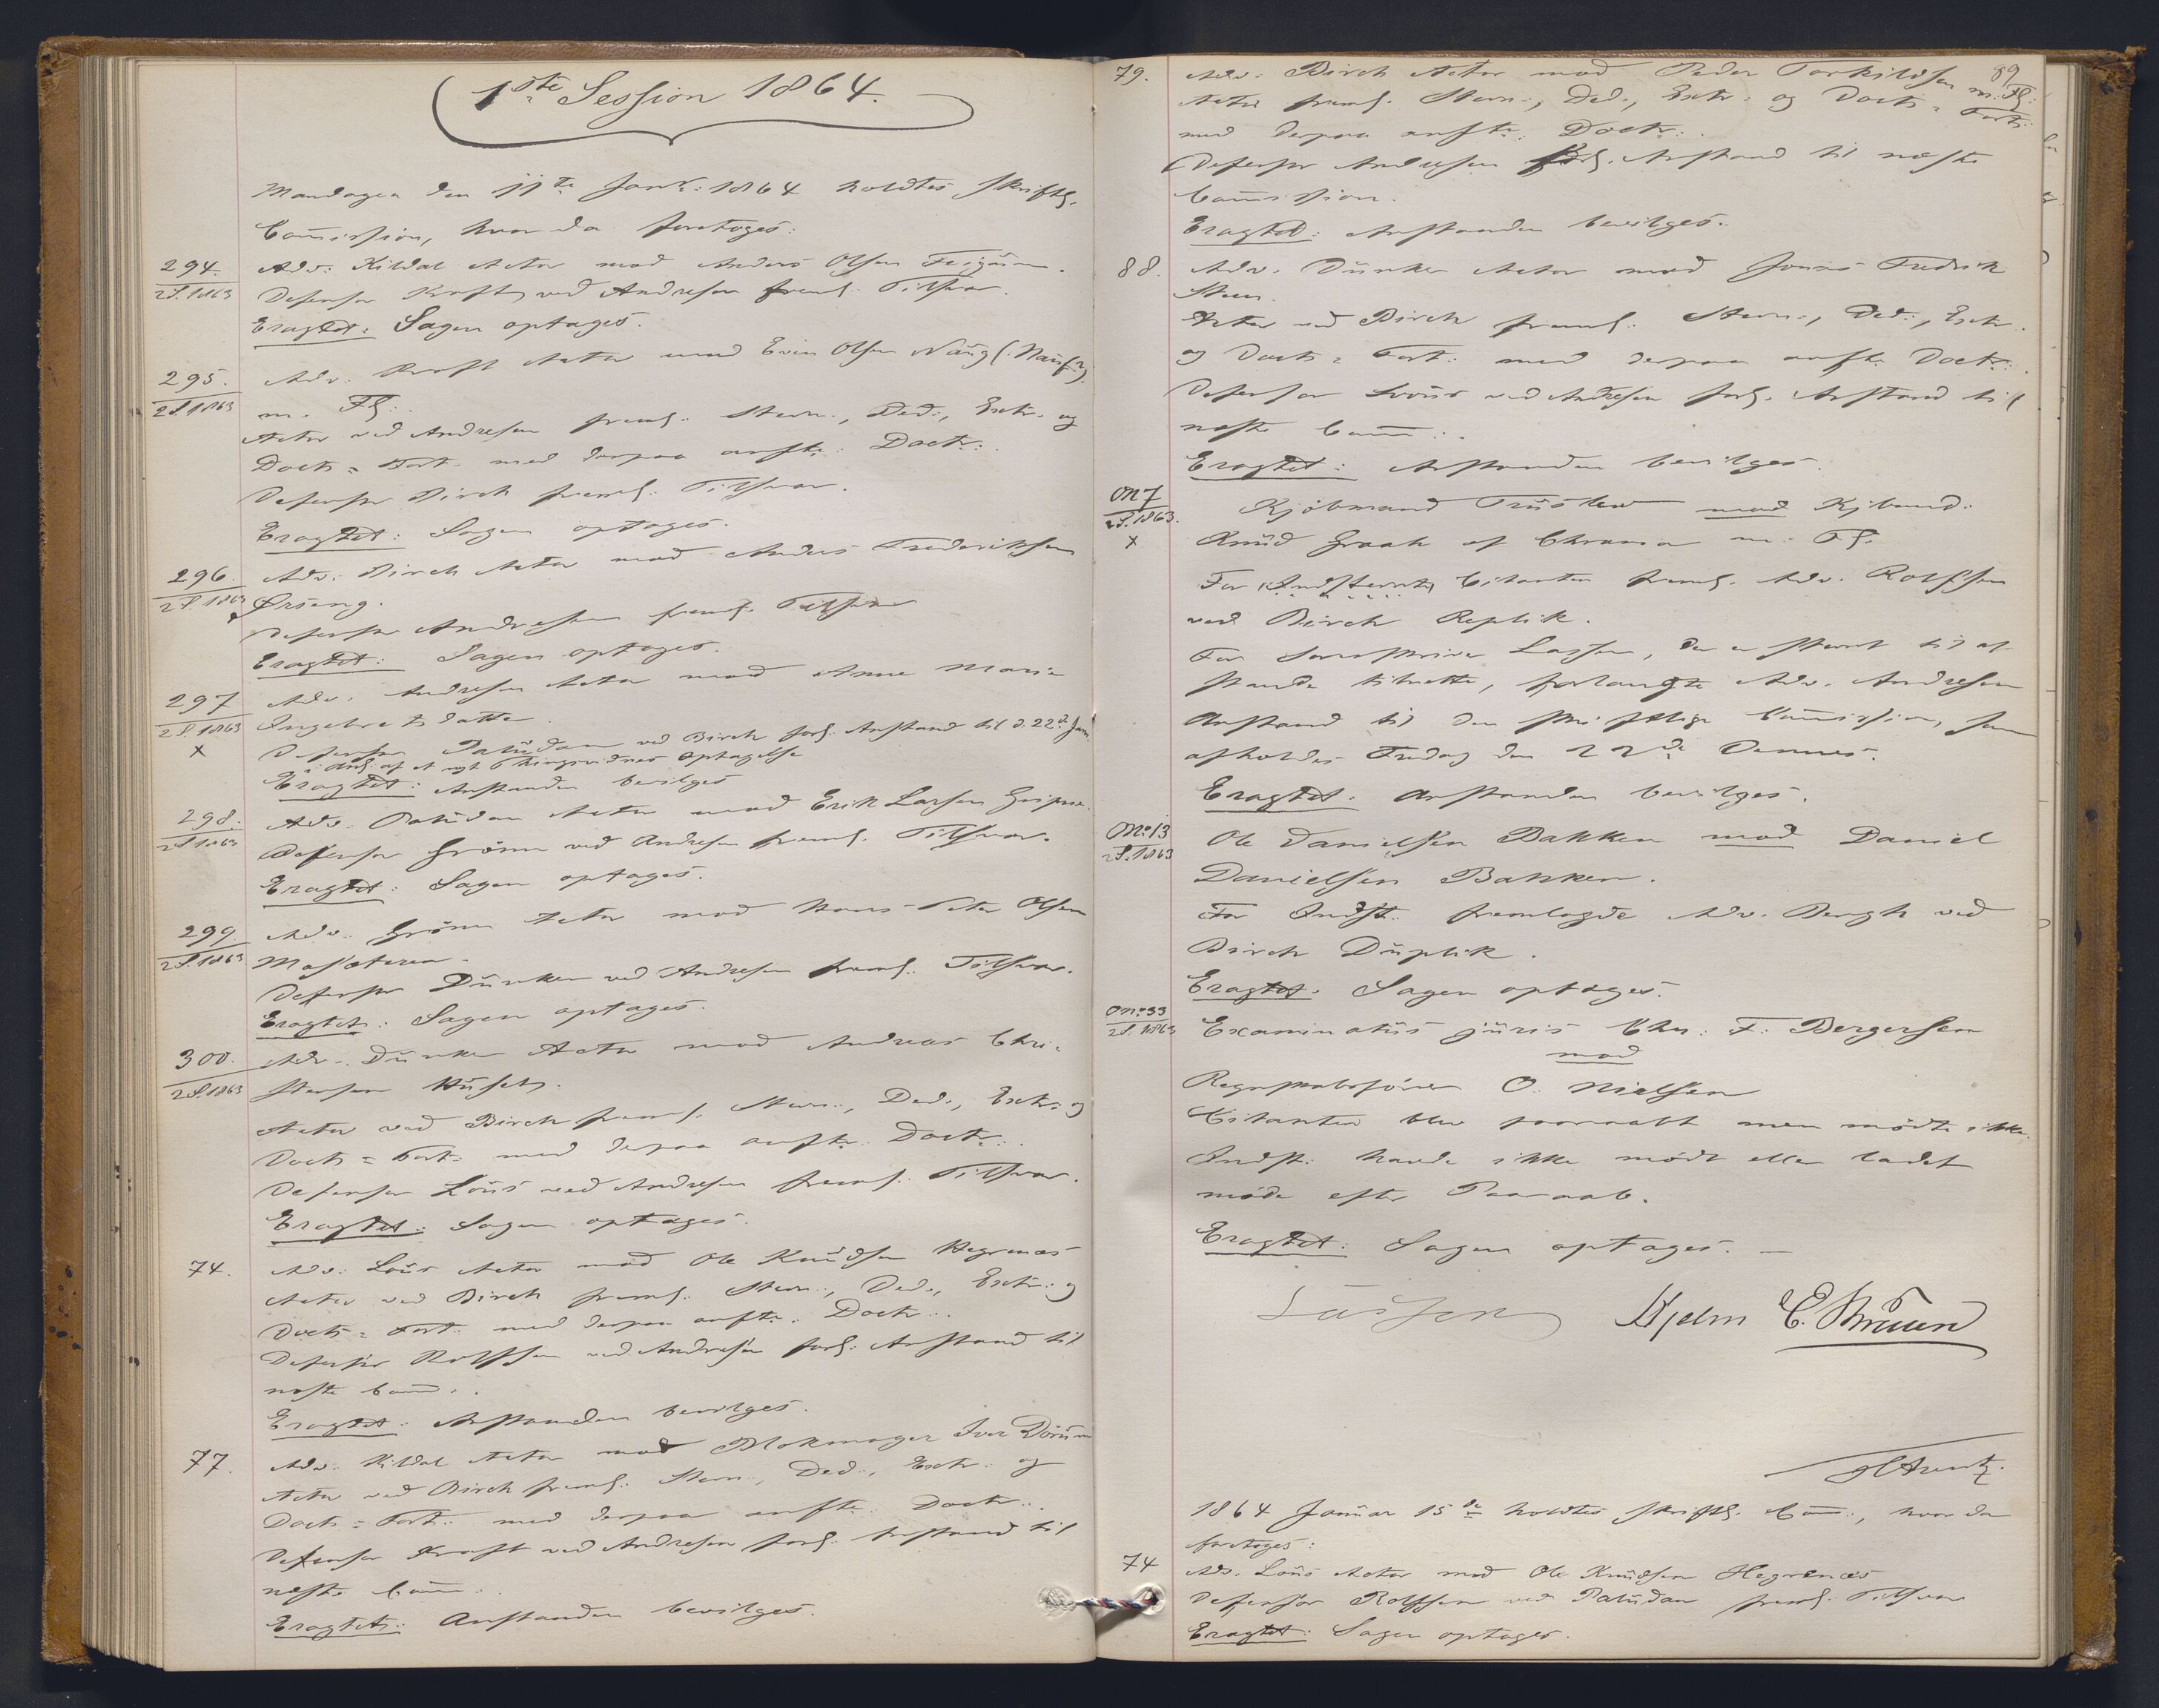 1ste Session 1864.
Mandagen den 11te Janr: 1864 holdtes skriftl.
Commission, hvor da foretoges:
294. Adv: Kildal Actor mod Anders Olsen
2S.1863 Defensor Kraft ved Andresen freml. Tilsvar.
Eragtet: Sagen optages.
295. Adv. Kraft Actor mod Even Olsen
2S.1863 m. Fl.
Actor ved Andresen freml: Stevn:, Ded:, Extr: og
Doc&ts = Fort. med derpaa anfte: Doctr:.
Defensor Birch freml. Tilsvar.
Eragtet: Sagen optages.
296. Adv: Birch Actor mod Anders Frederiksen
2S.1863 Ørseng.
Defensor Andresen freml. Tilsvar
Eragtet: Sagen optages.
297 Adv. Andresen Actor mod Anne Marie
2S.1863 Ingebretsdatter.
x Defensor Paludan ved Birch forl. Anstand til d. 22de Jan.
i Anl: af et nyt Thingsvidnes Optagelse
Eragtet: Anstanden bevilges
298. Adv. Paludan Actor mod Erik Larsen
2S.1863 Defensor Grönn ved Andresen freml. Tilsvar.
Eragtet: Sagen optages.
299. Adv. Grönn Actor mod Hans Peter Olsen
2S.1863
Defensor Dunker ved Andresen freml. Tilsvar.
Eragtet: Sagen optages.
300. Adv. Dunker Actor mod Andreas Chri-
2S.1863 stensen
Actor ved Birch freml. Stevn:, Ded:, Extr: og
Docts = Fort: med derpaa anfte. Doctr:.
Defensor Lous ved Andresen freml. Tilsvar.
Eragtet: Sagen optages.
74. Adv: Lous Actor mod Ole Knudsen Hegrenæs
Actor ved Birch freml: Stevn:, Ded:, Extr: og
Docts = Fort: med derpaa anfte. Doctr:.
Defensor Rolfsen ved Andresen forl: Anstand til
næste Comm:.
Eragtet: Anstanden bevilges.
77. Adv. Kildal Actor mod Blokmager Iver
Actor ved Birch freml: Stevn:, Ded:, Extr: og
Docts = Fort: med derpaa anfte. Doctr:.
Defensor Kraft ved Andresen forl. Anstand til
næste Comm:.
Eragtet: Anstanden bevilges.
89
79. Adv: Birch Actor mod Peder Torkildsen m: Fl:
Actor freml. Stevn:, Ded:, Extr: og Docts = Fort:
med derpaa anfte: Doctr:.
Defensor Andresen forl. Anstand til næste
Commission.
Eragtet: Anstanden bevilges.
88. Adv. Dunker Actor mod Fredrik
Steen.
Actor ved Birch freml: Stevn:, Ded:, Extr.
og Docts = Fort: med derpaa anfte Doctr:.
Defensor Lous ved Andresen forl. Anstand til
næste Comm:.
Eragtet: Anstanden bevilges.
On 7 Kjöbmand mod Kjbmd:
2S.1863. Knud Graah af Chrania m: Fl.
x For Indstevnte Citanten freml. Adv. Rolfsen
ved Birch Replik.
For Sorenskriver Lassen, der er stevnt til at
staande tilrette, forlangte Adv. Andresen
Anstand til den skriftlige Commission, som
afholdes Fredag den 22de Dennes.
Eragtet: Anstanden bevilges.
On: 13 Ole Danielsen Bakken mod Daniel
2S.1863 Danielsen Bakken.
For Indst: fremlagde Adv. Bergh ved
Birch Duplik.
Eragtet: Sagen optages.
On: 33 Examinatus juris Chr. F. Bergersen
2S.1863 mod
Regnskabsförer O. Nielsen
Citanten blev paaraabt men mödte ikke.
Indst: havde ikke mödt eller ladet
möde efter Paaraab.
Eragtet: Sagen optages. —
Lassen Hjelm E. Bruun
1864 Januar 15de holdtes skriftl. Comm:, hvor da
foretoges:
74 Adv. Lous Actor mod Ole Knudsen Hegrenæs
Defensor Rolfsen ved Paludan freml. Tilsvar
Eragtet: Sagen optages.